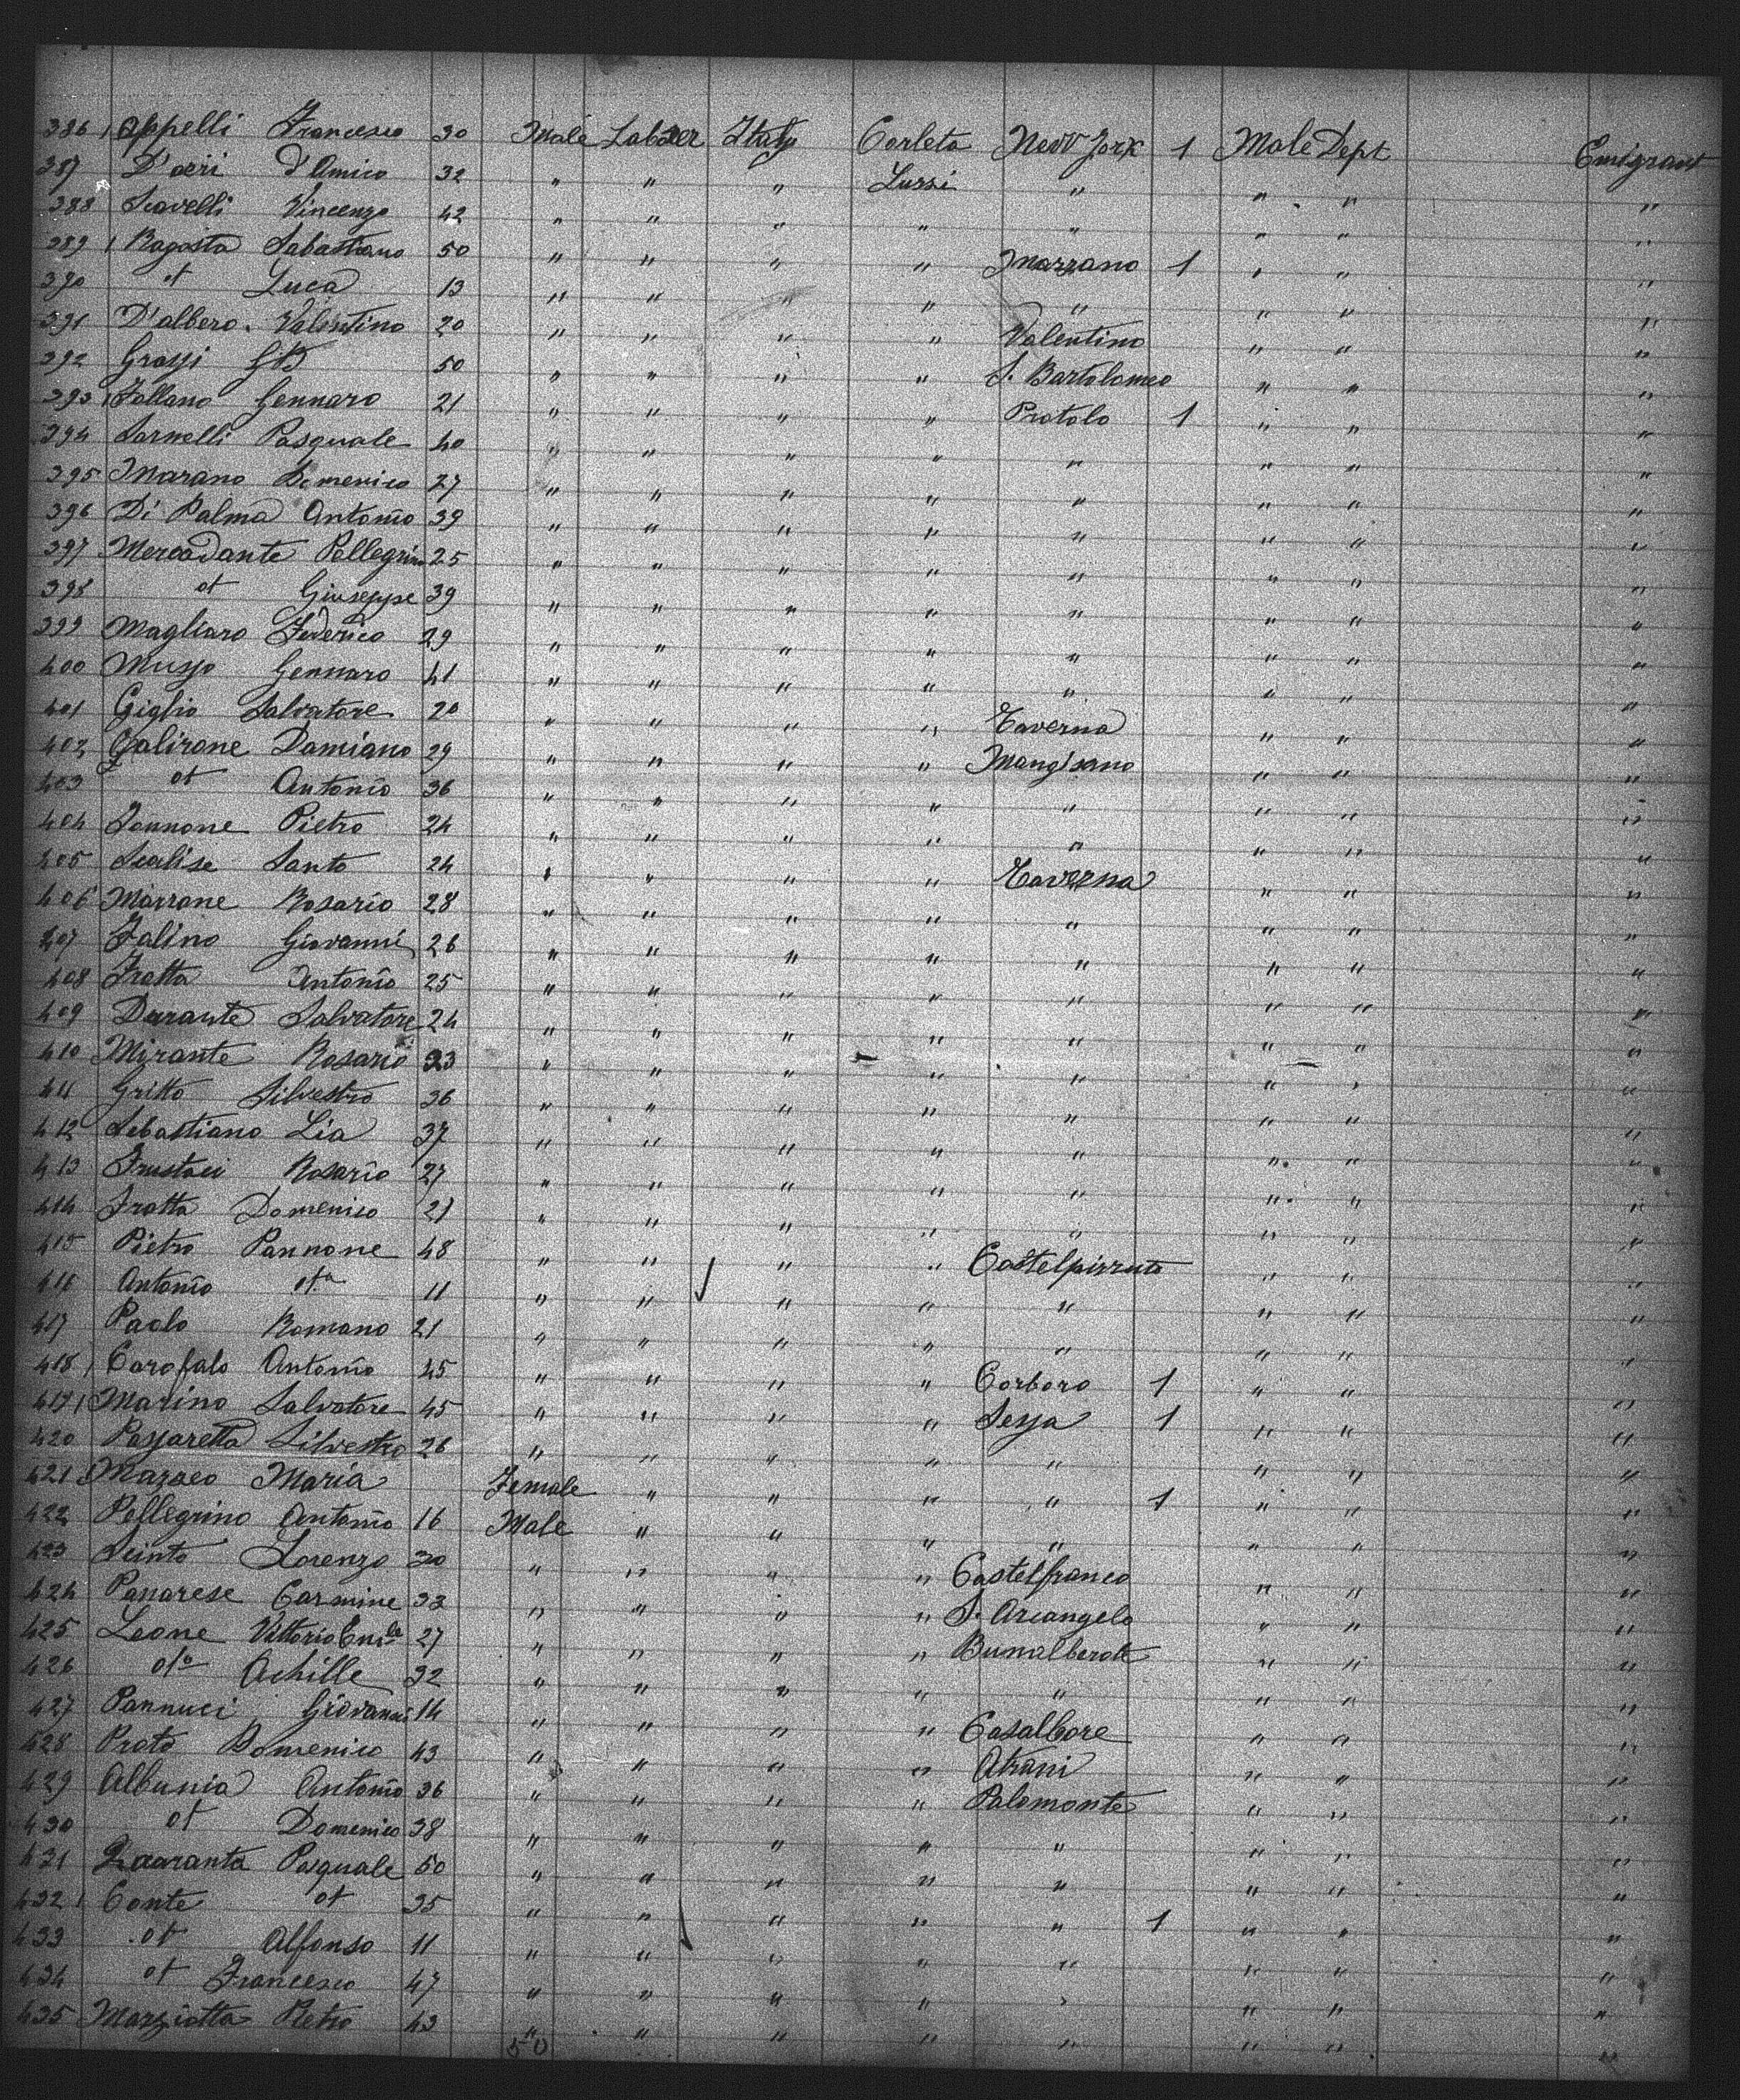 386 Appelli Francesco 30 Male Laborer Italy Corleto New York 1 Male Dept Emigrant
387 D'aeri d'Amico 32 " " " Lussi " " " "
388 Scovelli Vincenzo 42 " " " " " " " "
389 Ragosta Sabastiano 50 " " " " Mazzano 1 " " "
390 ot Luca 13 " " " " " " " "
391 D'albero Valentino 20 " " " " Valentino " " "
392 Grossi GB 50 " " " " S. Bartolomeo " " "
393 Follano Gennaro 21 " " " " Protolo 1 " " "
394 Sarnelli Pasquale 40 " " " " " " " "
395 Marano Domenico 27 " " " " " " " "
396 Di Palma Antonio 39 " " " " " " " "
397 Mercadante Pellegrino 25 " " " " " " " "
398 ot Giuseppe 39 " " " " " " " "
399 Magliaro Federico 29 " " " " " " " "
400 Musso Gennaro 41 " " " " " " " "
401 Giglio Salvatore 20 " " " " Taverna " " "
402 Galirone Damiano 29 " " " " Mangisano " " "
403 ot Antonio 36 " " " " " " " "
404 Iannone Pietro 24 " " " " " " " "
405 Scalise Santo 24 " " " " Taverna " " "
406 Marrane Rosario 28 " " " " " " " "
407 Falino Giovanni 26 " " " " " " " "
408 Fratta Antonio 25 " " " " " " " "
409 Durante Salvatore 24 " " " " " " " "
410 Mirante Rosario 33 " " " " " " " "
411 Gritto Silvestro 36 " " " " " " " "
412 Sebastiano Lia 37 " " " " " " " "
413 Frustaci Rosario 27 " " " " " " " "
414 Fratta Domenico 21 " " " " " " " "
415 Pietro Pannone 48 " " " " Castelpizzuto " " "
416 Antonio ota 11 " " " " " " " "
417 Paolo Romano 21 " " " " " " " "
418 Carofalo Antonio 45 " " " " Corbara 1 " " "
419 Marino Salvatore 45 " " " " Sessa 1 " " "
420 Passaretta Silvestro 26 " " " " " " " "
421 Mazzeo Maria Female " " " " 1 " " "
422 Pellegrino Antonio 16 Male " " " " " " "
423 Scinto Lorenzo 30 " " " " Castelfranco " " "
424 Panarese Carmine 33 " " " " S. Arcangelo " " "
425 Leone Vittorio Emle 27 " " " " Bunalberote " " "
426 oto Achille 32 " " " " " " " "
427 Pannuci Giovanni 14 " " " " Casalbore " " "
428 Proto Domenico 43 " " " " Atrani " " "
429 Albunia Antonio 36 " " " " Palomonte " " "
430 ot Domenico 38 " " " " " " " "
431 Quaranta Pasquale 50 " " " " " " " "
432 Conte ot 35 " " " " " 1 " " "
433 ot Alfonso 11 " " " " " " " "
434 ot Francesco 47 " " " " " " " "
435 Marziotta Pietro 43 " " " " " " " "
50